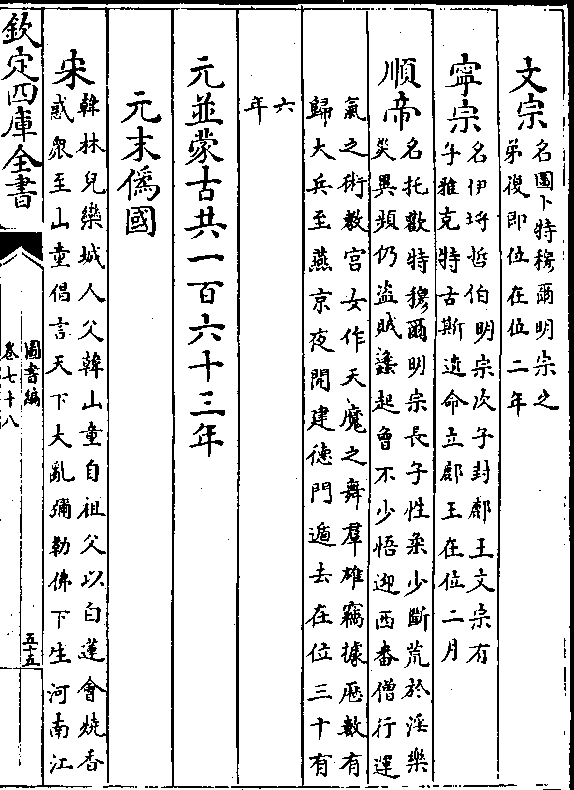 文宗名圖卜特穆爾明宗之
弟復即位在位二年
寧宗名伊埒哲伯明宗次子封鄜王文宗有
子雅克特古斯遺命立鄜王在位二月
順帝名托歡特穆爾明宗長子性柔少斷荒於淫樂
災異頻仍盜賊蠭起曾不少悟迎西番僧行運
氣之術數宫女作天魔之舞羣雄竊據厯數有
歸大兵至燕京夜開建德門遁去在位三十有
六
年
元並蒙古共一百六十三年
元末僞國
宋韓林兒欒城人父韓山童自祖父以白蓮會燒香
惑衆至山童倡言天下大亂彌勒佛下生河南江
欽定四庫全書
圖書編
卷七十八
五十五